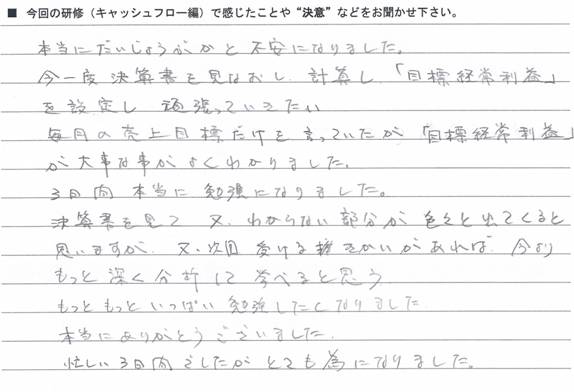 ■ 今回の研修（キャッシュフロー編）で感じたことや“決意”などをお聞かせ下さい。
本当にだいじょうぶかと不安になりました。
今一度決算書を見なおし、計算し、「目標経常利益」
を設定し 頑張っていきたい
毎月の売上目標だけを言っていたが「目標経常利益」
が大事な事がよくわかりました。
3日間 本当に勉強になりました。
決算書を見て 又、わからない部分が色々と出てくると
思いますが、又、次回 受ける機会があれば 今より
もっと深く分析して学べると思う
もっともっといっぱい勉強したくなりました
本当にありがとうございました。
忙しい3日間でしたがとても為になりました。